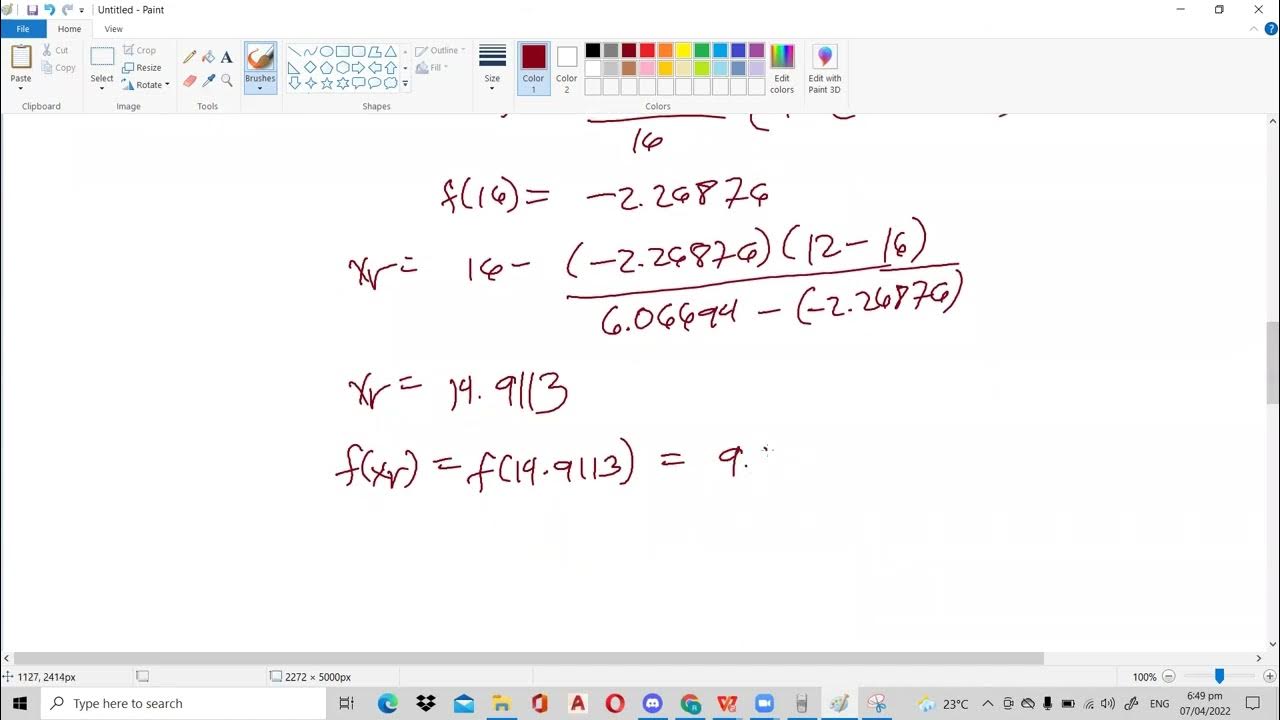 Untitled - Paint
File Home View
Paste Cut Copy Select Crop Resize Rotate Brushes Outline Fill Size Color 1 Color 2 Edit colors Edit with Paint 3D
Clipboard Image Tools Shapes Colors
16
f(16) = -2.26876
xr = 16 - (-2.26876)(12 - 16)
6.06694 - (-2.26876)
xr = 14.9113
f(xr) = f(14.9113) = 9.
1127, 2414px 2272 × 5000px 100%
Type here to search 23°C ENG 6:49 pm
07/04/2022